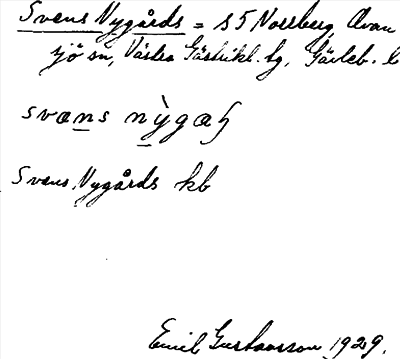 Svens Nygårds = s 5 Norrberg, Ovan
sjö sn, Västra Gästrikl. tg, Gävleb. l
svæns nỳgaꞕ
Svens Nygårds kb
Emil Gustavsson 1929.